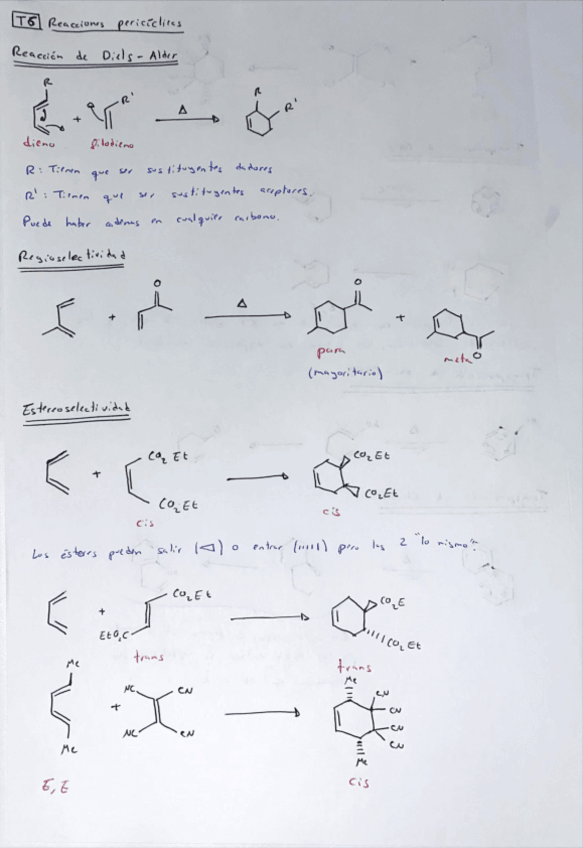 T6 Reacciones pericíclicas
Reacción de Diels-Alder
R
R'
+
Δ
R
R'
dieno
filodieno
R: Tienen que ser sustituyentes dadores
R': Tienen que ser sustituyentes aceptores.
Puede haber además en cualquier carbono.
Regioselectividad
O
+
Δ
O
+
O
para
(mayoritario)
meta
Estereoselectividad
+
CO2Et
CO2Et
cis
CO2Et
CO2Et
cis
Los ésteres pueden salir (◅) o entrar (ıııı) pero los 2 "lo mismo".
+
CO2Et
EtO2C
trans
CO2E
CO2Et
trans
Me
Me
+
NC
CN
NC
CN
Me
CN
CN
CN
CN
Me
E, E
cis